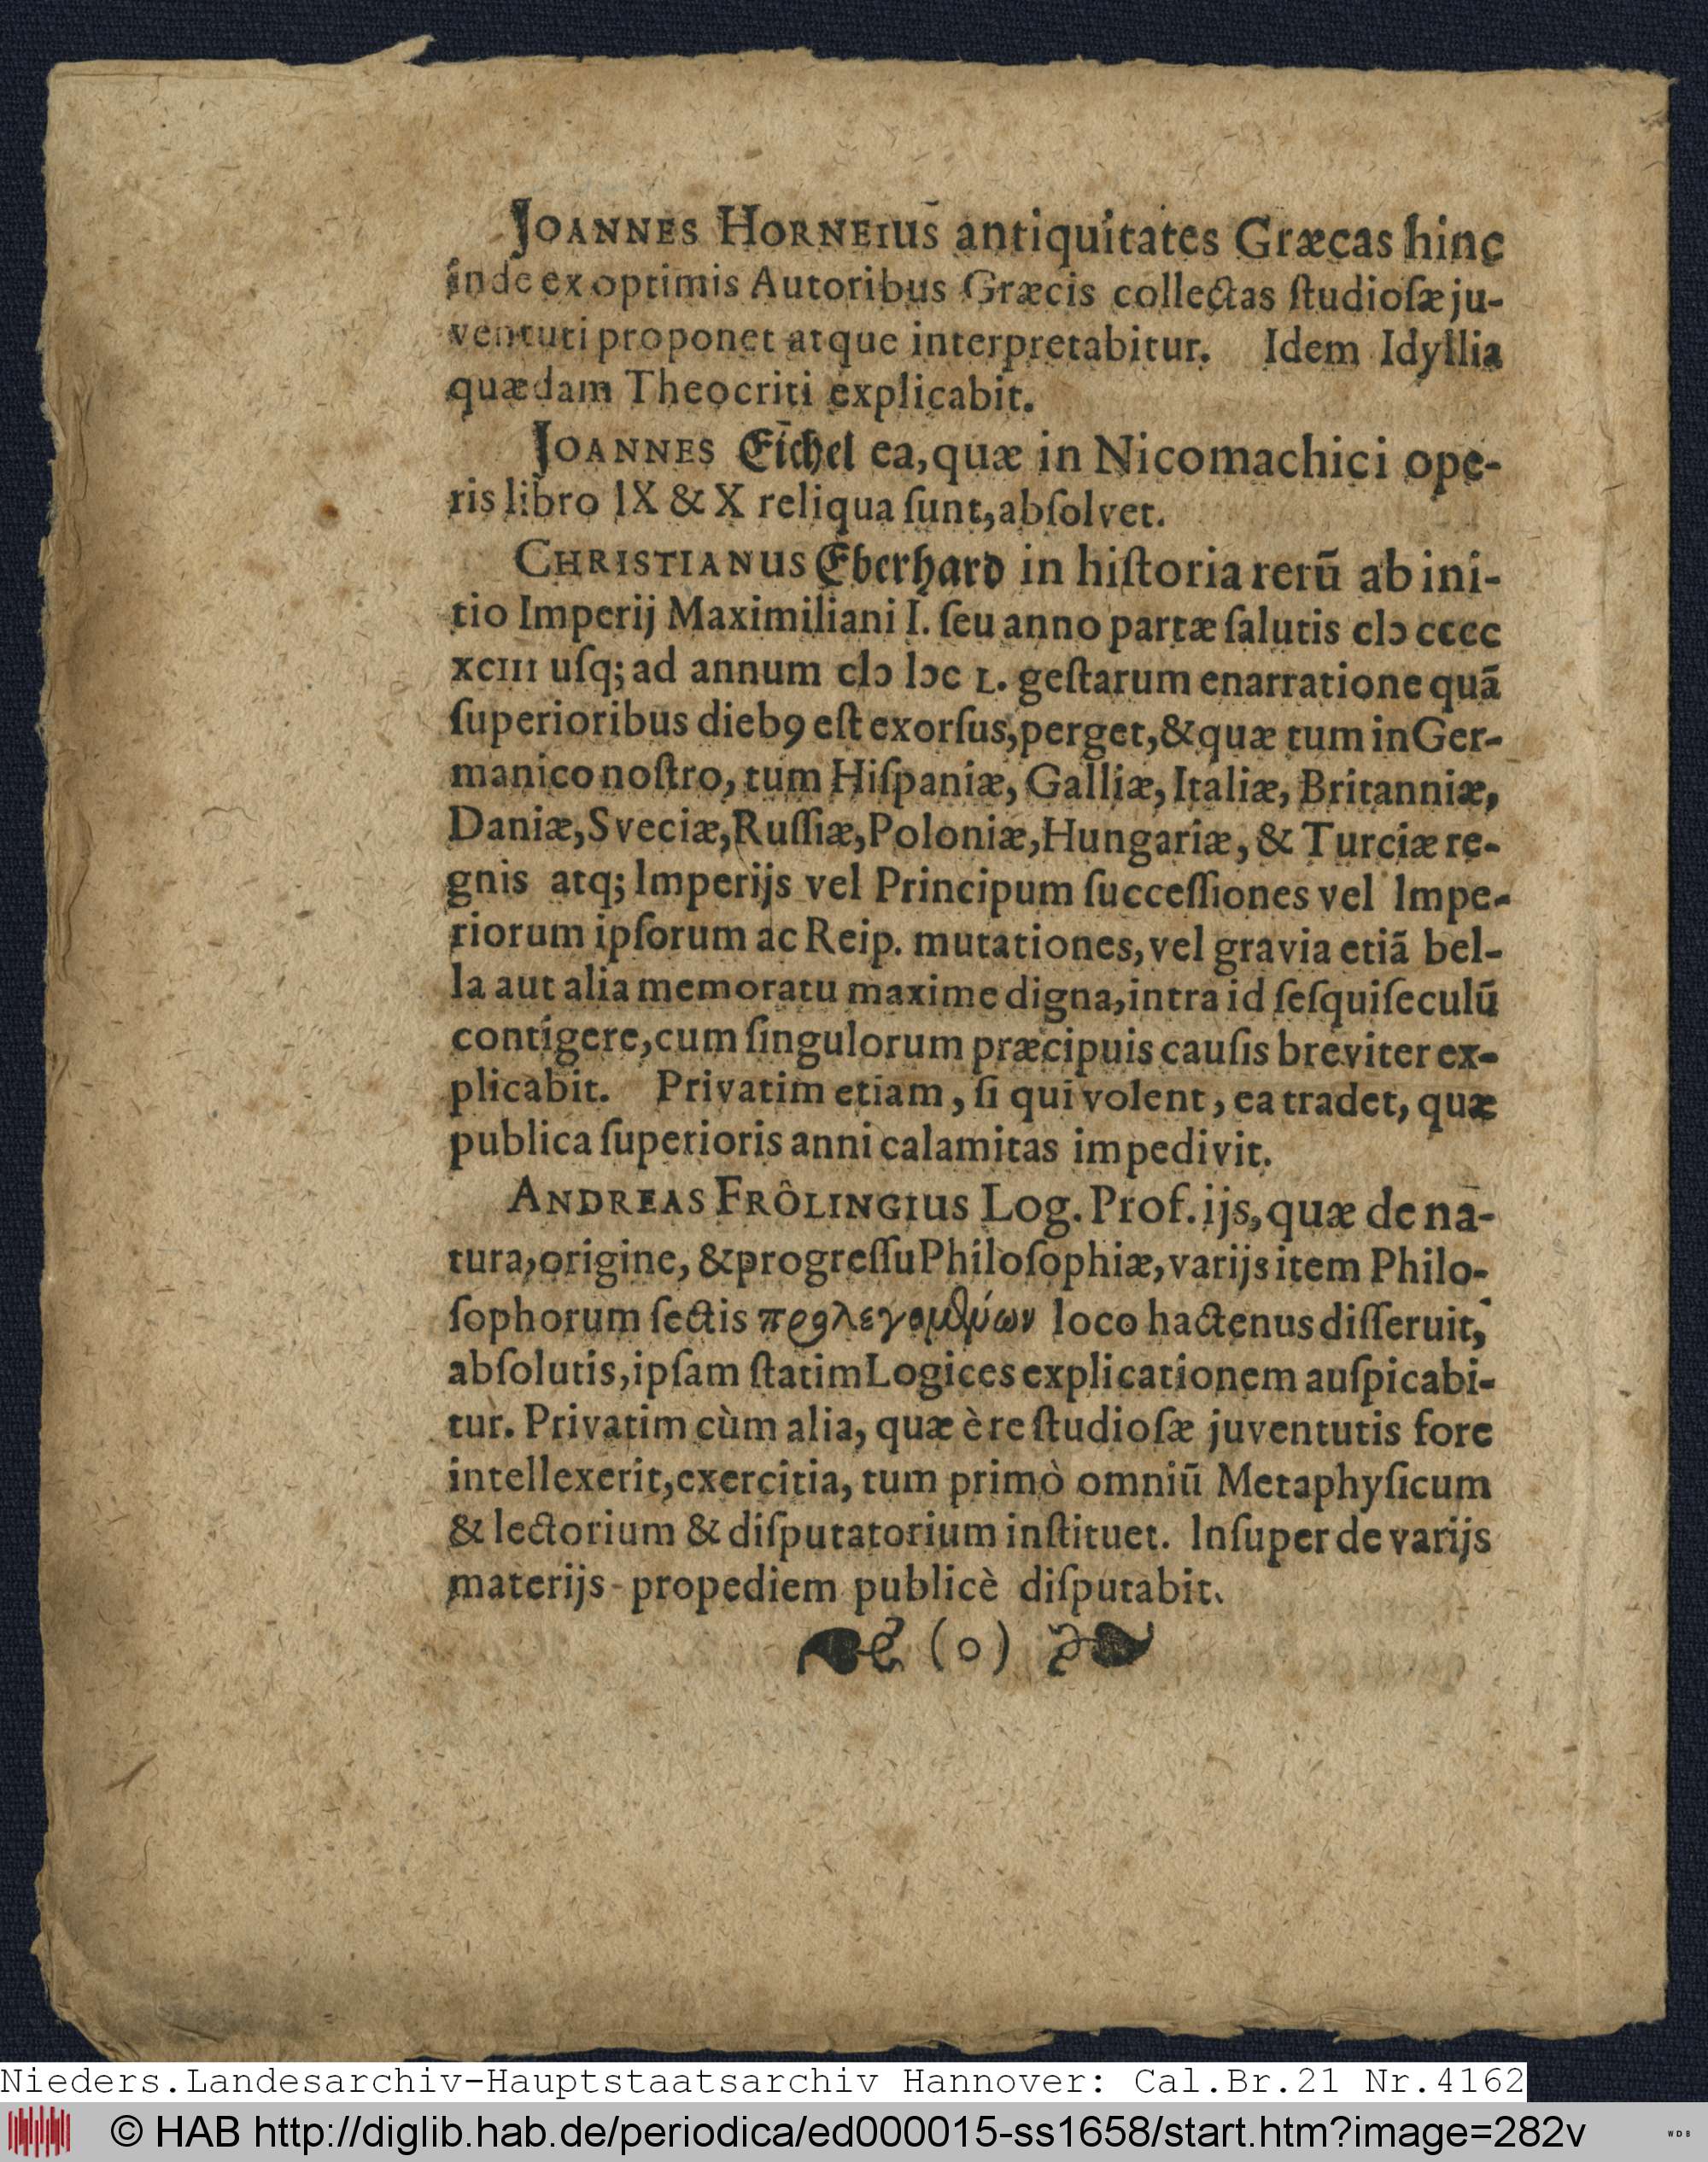 JOANNES HORNEIUS antiquitates Græcas hinc
inde ex optimis Autoribus Græcis collectas ſtudioſæ ju-
ventuti proponet atque interpretabitur. Idem Idyllia
quædam Theocriti explicabit.
JOANNES Eichel ea, quæ in Nicomachici ope-
ris libro IX & X reliqua ſunt, abſolvet.
CHRISTIANUS Eberhard in hiſtoria rerū ab ini-
tio Imperij Maximiliani I. ſeu anno partæ ſalutis cIↄ cccc
xciii uſq; ad annum cIↄ Iↄc L. geſtarum enarratione quã
ſuperioribus dieb9 eſt exorſus, perget, & quæ tum in Ger-
manico noſtro, tum Hiſpaniæ, Galliæ, Italiæ, Britanniæ,
Daniæ, Sveciæ, Ruſſiæ, Poloniæ, Hungariæ, & Turciæ re-
gnis atq; Imperijs vel Principum ſucceſſiones vel Impe-
riorum ipſorum ac Reip. mutationes, vel gravia etiã bel-
la aut alia memoratu maxime digna, intra id ſeſquiſeculū
contigere, cum ſingulorum præcipuis cauſis breviter ex-
plicabit. Privatim etiam, ſi qui volent, ea tradet, quæ
publica ſuperioris anni calamitas impedivit.
ANDREAS FRÔLINGIUS Log. Prof. ijs, quæ de na-
tura, origine, & progreſſu Philoſophiæ, varijs item Philo-
ſophorum ſectis προλεγομένων loco hactenus diſſeruit,
abſolutis, ipſam ſtatim Logices explicationem auſpicabi-
tur. Privatim cùm alia, quæ è re ſtudioſæ juventutis fore
intellexerit, exercitia, tum primò omniū Metaphyſicum
& lectorium & diſputatorium inſtituet. Inſuper de varijs
materijs propediem publicè diſputabit.
(o)
Nieders.Landesarchiv-Hauptstaatsarchiv Hannover: Cal.Br.21 Nr.4162
© HAB http://diglib.hab.de/periodica/ed000015-ss1658/start.htm?image=282v
WDB